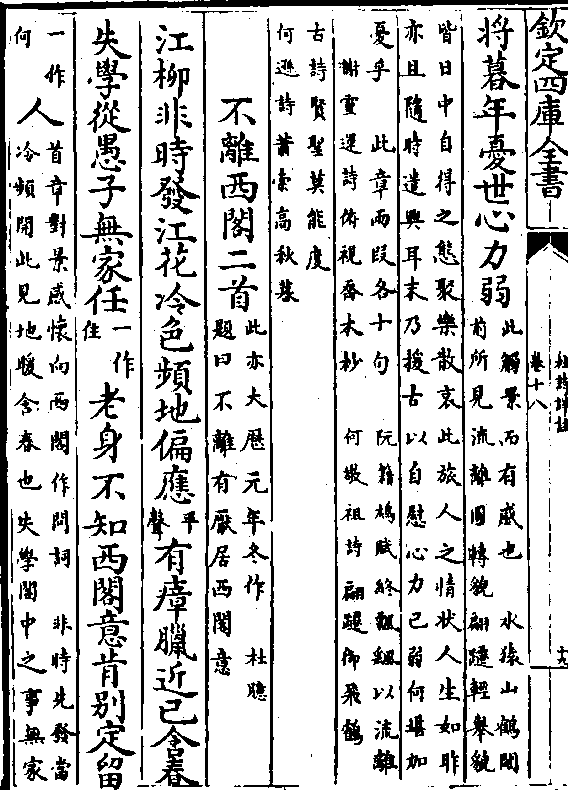 欽定四庫全書
杜詩詳註
卷十八
十九
將暮年憂世心力弱此觸景而有感也 水猿山鶴閣
前所見流離圓轉貌翩躚輕舉貌
皆日中自得之態聚樂散哀此旅人之情狀人生如昨
亦且隨時遣興耳末乃援古以自慰心力已弱何堪加
憂乎 此章兩段各十句 阮籍鳩賦終飄颻以流離
謝靈運詩俯視喬木杪 何敬祖詩翩躚御飛鶴
古詩賢聖莫能度
何遜詩蕭索高秋暮
不離西閣二首此亦大厯元年冬作 杜臆
題曰不離有厭居西閣意
江柳非時發江花冷色頻地偏應平聲有瘴臘近已含春
失學從愚子無家任一作住老身不知西閣意肯別定留
一作何人首章對景感懷向西閣作問詞 非時先發當
冷頻開此見地暖含春也失學閣中之事無家